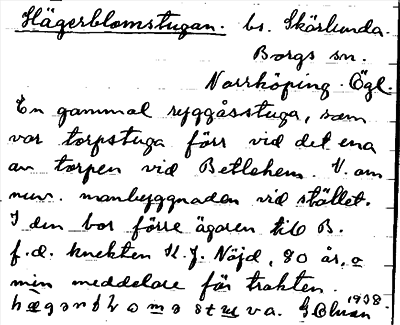 Hägerblomstugan. bs. Skärlunda.
Borgs sn.
Norrköping. Ögl.
En gammal ryggåsstuga, som
var torpstuga förr vid det ena
av torpen vid Betlehem. V. om
nuv. manbyggnaden vid stället.
I den bor förre ägaren till B.
f.d. knekten K. J. Nöjd, 80 år, o
min meddelare för trakten.
1938.